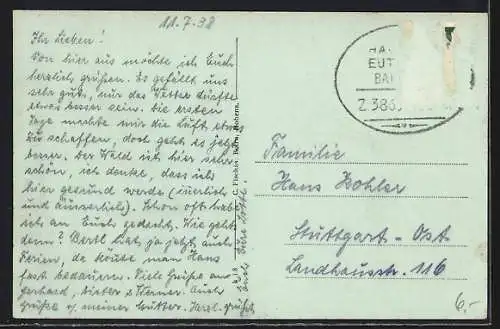 11.7.38
Ihr Lieben!
Von hier aus möchte ich Euch
herzlich grüßen. Es gefällt uns
sehr gut, nur das Wetter dürfte
etwas besser sein. Die ersten
Tage machte mir die Luft etwas
zu schaffen, doch geht es jetzt
besser. Der Wald ist hier sehr
schön, ich denke, dass ich
hier gesund werde (innerlich
und äusserlich). Schon oft hab
ich an Euch gedacht. Wie geht's
denn? Wertl hat ja jetzt auch
Ferien, da könnte man Hans
fast bedauern. Viele Grüße an
Gerhard, Dieter u. Werner. Auch
Grüße v. meiner Mutter. Herzl. grüßt
Euch Eure
EUT
BA
Z.386
Familie
Hans Bohler
Stuttgart-Ost
Landhausstr. 116
6,-